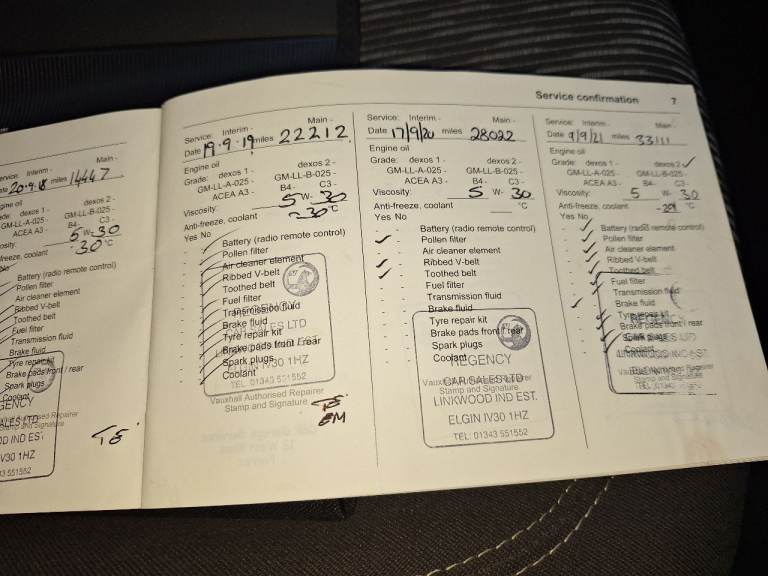 Service confirmation 7
Interim - Main -
Date 20.9.18 miles 14447
dexos 1 - dexos 2 -
GM-LL-A-025 - GM-LL-B-025 -
ACEA A3 - C3 -
5 W- 30
coolant -30 °C
Battery (radio remote control)
Pollen filter
Air cleaner element
Ribbed V-belt
Toothed belt
Fuel filter
Transmission fluid
Brake fluid
Tyre repair kit
Brake pads front / rear
Spark plugs
Coolant
IV30 1HZ
Service: Interim - Main -
Date 19.9.19 miles 22212
Engine oil
Grade: dexos 1 - dexos 2 -
GM-LL-A-025 - GM-LL-B-025 -
ACEA A3 - B4- C3 -
Viscosity: 5 W- 30
Anti-freeze, coolant -30 °C
Yes No
Battery (radio remote control)
Pollen filter
Air cleaner element
Ribbed V-belt
Toothed belt
Fuel filter
Transmission fluid
Brake fluid
Tyre repair kit
Brake pads front / rear
Spark plugs
Coolant
REGENCY
CAR SALES LTD
LINKWOOD IND EST.
ELGIN IV30 1HZ
TEL: 01343 551552
Vauxhall Authorised Repairer
Stamp and Signature
Service: Interim - Main -
Date 17/9/20 miles 28022
Engine oil
Grade: dexos 1 - dexos 2 -
GM-LL-A-025 - GM-LL-B-025 -
ACEA A3 - B4- C3 -
Viscosity: 5 W- 30
Anti-freeze, coolant °C
Yes No
Battery (radio remote control)
Pollen filter
Air cleaner element
Ribbed V-belt
Toothed belt
Fuel filter
Transmission fluid
Brake fluid
Tyre repair kit
Brake pads front / rear
Spark plugs
Coolant
REGENCY
CAR SALES LTD
LINKWOOD IND EST.
ELGIN IV30 1HZ
TEL: 01343 551552
Service: Interim - Main -
Date 9/9/21 miles 33111
Engine oil
Grade: dexos 1 - dexos 2 -
GM-LL-A-025 - GM-LL-B-025 -
ACEA A3 - B4- C3 -
Viscosity: 5 W- 30
Anti-freeze, coolant °C
Yes No
Battery (radio remote control)
Pollen filter
Air cleaner element
Ribbed V-belt
Toothed belt
Fuel filter
Transmission fluid
Brake fluid
Tyre repair kit
Brake pads front / rear
Spark plugs
Coolant
Stamp and Signature